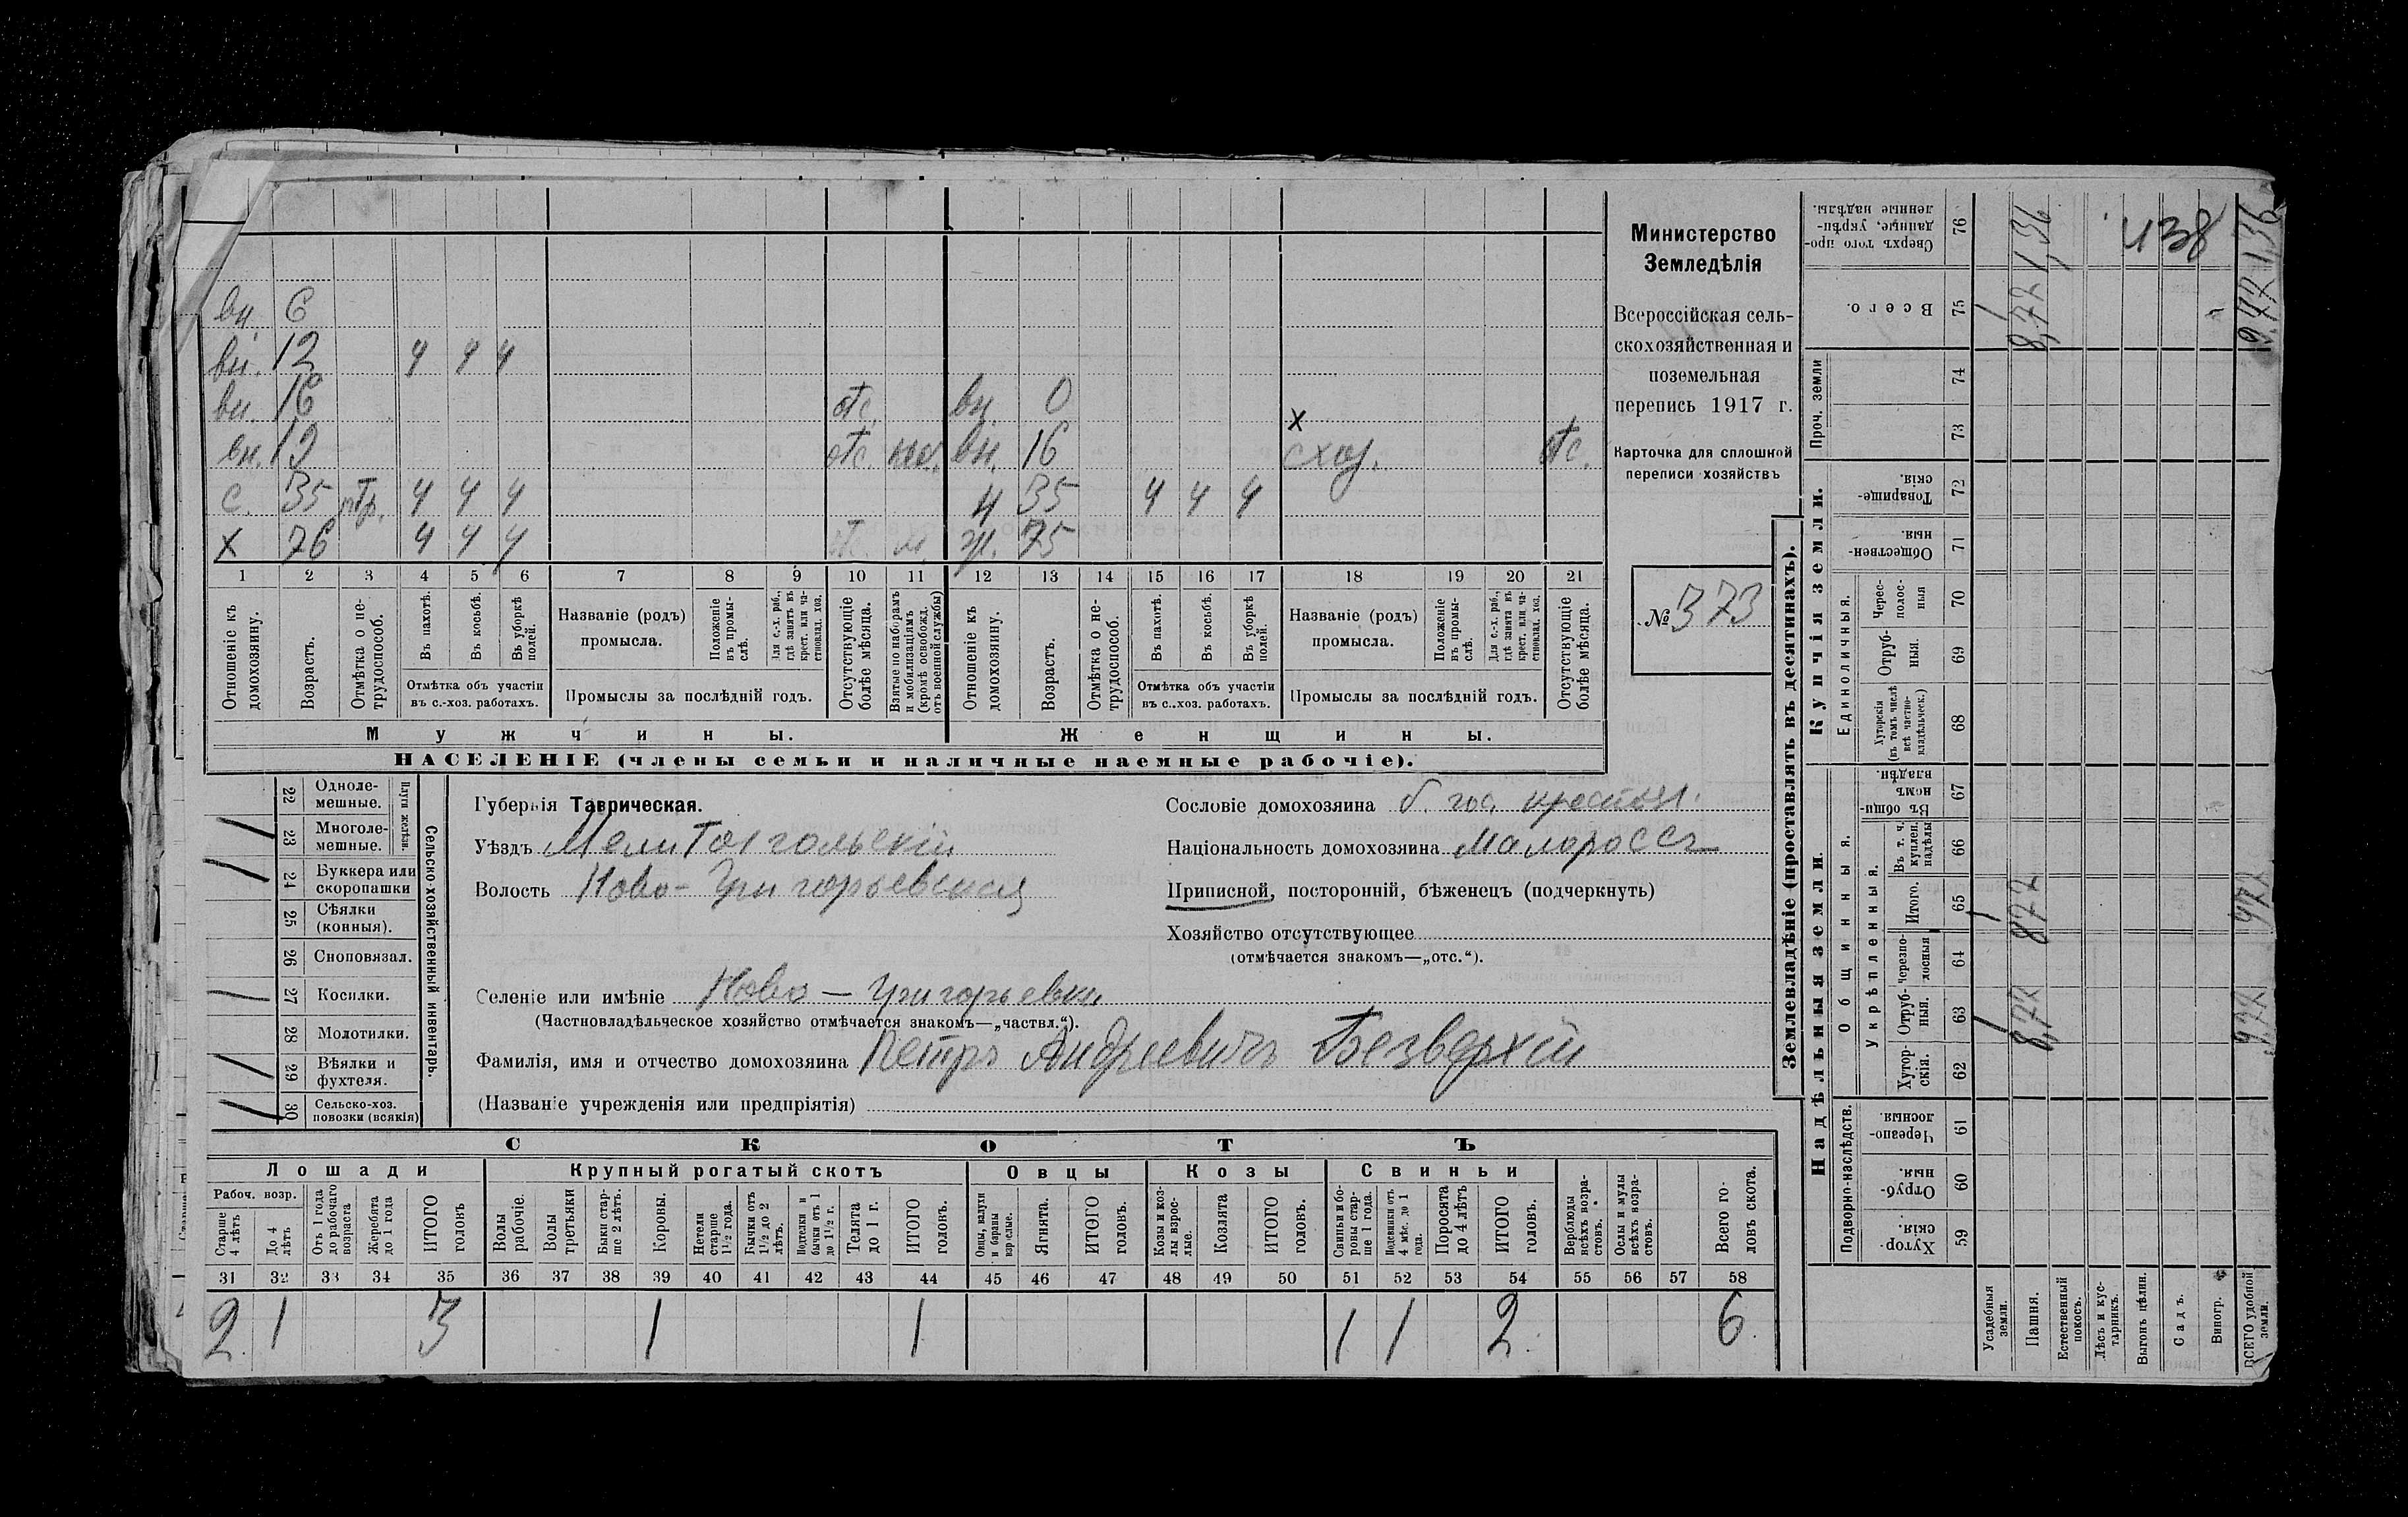 Министерство
Земледѣлія
Всероссійская сель-
скохозяйственная и
поземельная
перепись 1917 г.
Карточка для сплошной
переписи хозяйствъ
№ 373
вн. 6
вн. 12 4 4 4
вн. 16 отс. вн. 0
х
вн. 19 отс. вн. 16 отс.
с. 35 4 4 4 н 35 4 4 4
х 76 4 4 4 ж. 75
1 2 3 4 5 6 7 8 9 10 11 12 13 14 15 16 17 18 19 20 21
Отношеніе къ домохозяину.
Возрастъ.
Отмѣтка о не-трудоспособ.
Въ пахотѣ.
Въ косьбѣ.
Въ уборкѣ полей.
Отмѣтка объ участіи въ с.-хоз. работахъ.
Названіе (родъ) промысла.
Положеніе въ промы-слѣ.
Для с.-х. раб., гдѣ занятъ въ крест. или ча-стновлад. хоз.
Промыслы за послѣдній годъ.
Отсутствующіе болѣе мѣсяца.
Взятые по наборамъ и мобилизаціямъ (кромѣ освобожд. отъ военной службы)
Отношеніе къ домохозяину.
Возрастъ.
Отмѣтка о не-трудоспособ.
Въ пахотѣ.
Въ косьбѣ.
Въ уборкѣ полей.
Отмѣтка объ участіи въ с.-хоз. работахъ.
Названіе (родъ) промысла.
Положеніе въ промы-слѣ.
Для с.-х. раб., гдѣ занята въ крест. или ча-стновлад. хоз.
Промыслы за послѣдній годъ.
Отсутствующіе болѣе мѣсяца.
Мужчины. Женщины.
НАСЕЛЕНІЕ (члены семьи и наличные наемные рабочіе).
Сельско-хозяйственный инвентарь.
Плуги желѣзн.
22 Одноле-мешные.
23 Многоле-мешные.
24 Буккера или скоропашки
25 Сѣялки (конныя).
26 Сноповязал.
27 Косилки.
28 Молотилки.
29 Вѣялки и фухтеля.
30 Сельско-хоз. повозки (всякія)
Губернія Таврическая.
Уѣздъ Мелитопольскій
Волость Ново-Григорьевская
Селеніе или имѣніе Ново-Григорьевка
(Частновладѣльческое хозяйство отмѣчается знакомъ—„частвл.“).
Фамилія, имя и отчество домохозяина Петръ Андреевичъ Безверхій
(Названіе учрежденія или предпріятія)
Сословіе домохозяина б. гос. крестьян.
Національность домохозяина Малороссъ
Приписной, посторонній, бѣженецъ (подчеркнуть)
Хозяйство отсутствующее
(отмѣчается знакомъ—„отс.“).
СКОТЪ
Лошади Крупный рогатый скотъ Овцы Козы Свиньи
Рабоч. возр.
Старше 4 лѣтъ
До 4 лѣтъ
Отъ 1 года до рабочаго возраста
Жеребята до 1 года
ИТОГО головъ
Волы рабочіе.
Волы третьяки
Быки стар-ше 2 лѣтъ.
Коровы.
Нетели старше 1½ года.
Бычки отъ 1½ до 2 лѣтъ.
Подтелки и бычки отъ 1 до 1½ г.
Телята до 1 г.
ИТОГО головъ.
Овцы, валухи и бараны взрослые.
Ягнята.
ИТОГО головъ.
Козы и коз-лы взрос-лые.
Козлята
ИТОГО головъ.
Свиньи и бо-ровы стар-ше 1 года.
Подсвинки отъ 4 мѣс. до 1 года.
Поросята до 4 лѣтъ
ИТОГО головъ.
Верблюды всѣхъ возра-стовъ.
Ослы и мулы всѣхъ возра-стовъ.
Всего го-ловъ скота.
31 32 33 34 35 36 37 38 39 40 41 42 43 44 45 46 47 48 49 50 51 52 53 54 55 56 57 58
2 1 3 1 1 1 1 2 6
Землевладѣніе (проставлять въ десятинахъ).
Надѣльныя земли. Купчія земли.
Подворно-наслѣдств.
Общинныя.
Укрѣпленныя.
Единоличныя.
Проч. земли
59 Хутор-скія.
60 Отруб-ныя.
61 Черезпо-лосныя.
62 Хутор-скія.
63 Отруб-ныя.
64 Черезпо-лосныя
65 Итого.
66 Въ т. ч. куплен. надѣлы
67 Въ общи-номъ владѣн.
68 Хуторскія (въ томъ числѣ всѣ частно-владѣльческ.)
69 Отруб-ныя.
70 Черес-полос-ныя
71 Обществен-ныя.
72 Товарище-скія.
73
74
75 Всего.
76 Сверхъ того про-данные, укрѣп-ленные надѣлы.
Усадебныя земли. 1 1 1
Пашня. 8,72 8,72 8,72 1,36
Естественный покосъ.
Лѣсъ и кус-тарникъ.
Выгонъ цѣлин.
Садъ.
Виногр.
ВСЕГО удобной земли. 9,72 9,72 9,72 1,36
438